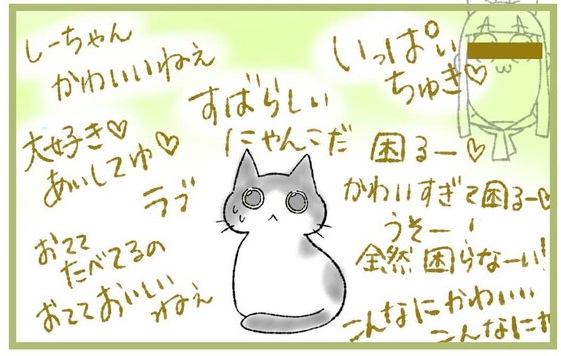 しーちゃん
かわいいねぇ
いっぱい
ちゅき♡
すばらしい
にゃんこだ
大好き♡
あいしてゆ♡
ラブ
困るー♡
かわいすぎて困るー♡
うそーー!
全然困らなーい!
おてて
たべてるの
おててておいしい
ねぇ
こんなにかわいい
こんなにか